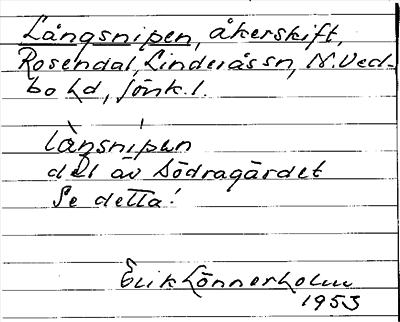 Långsnipen, åkerskift,
Rosendal, Linderås sn, N. Ved-
bo hd, Jönk. l.
làŋsnìpen
del av Södragärdet
Se detta!
Erik Lönnerholm
1953